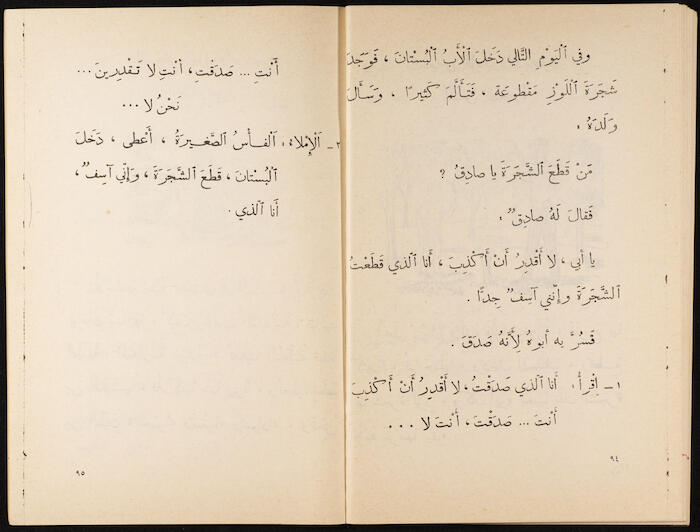 وفي ٱلْيَوْمِ التَّالي دَخَلَ ٱلْأَبُ ٱلْبُسْتانَ ، فَوَجَدَ
شَجَرَةَ ٱللَّوْزِ مَقْطوعَة ، فَتَأَلَّمَ كَثيرًا ، وَسَأَلَ
وَلَدَهُ :
مَنْ قَطَعَ الشَّجَرَةَ يا صادِقُ ؟
فَقالَ لَهُ صادِقٌ :
يا أَبي ، لا أَقْدِرُ أَنْ أَكْذِبَ ، أَنا ٱلَّذي قَطَعْتُ
الشَّجَرَةَ وَإِنَّني آسِفٌ جِدًّا .
فَسُرَّ بِهِ أَبوهُ لِأَنَّهُ صَدَقَ .
١ ـ اِقْرأْ : أَنا ٱلَّذي صَدَقْتُ ، لا أَقْدِرُ أَنْ أَكْذِبَ
أَنْتَ ... صَدَقْتَ ، أَنْتَ لا ...
٩٤
أَنْتِ ... صَدَقْتِ ، أَنْتِ لا تَقْدِرينَ ...
نَحْنُ لا ...
٢ ـ اَلْإِمْلاءُ : ٱلْفَأْسُ الصَّغيرَةُ ، أَعْطى ، دَخَلَ
ٱلْبُسْتانَ ، قَطَعَ الشَّجَرَةَ ، وَإِنّي آسِفٌ ،
أَنا ٱلَّذي .
٩٥